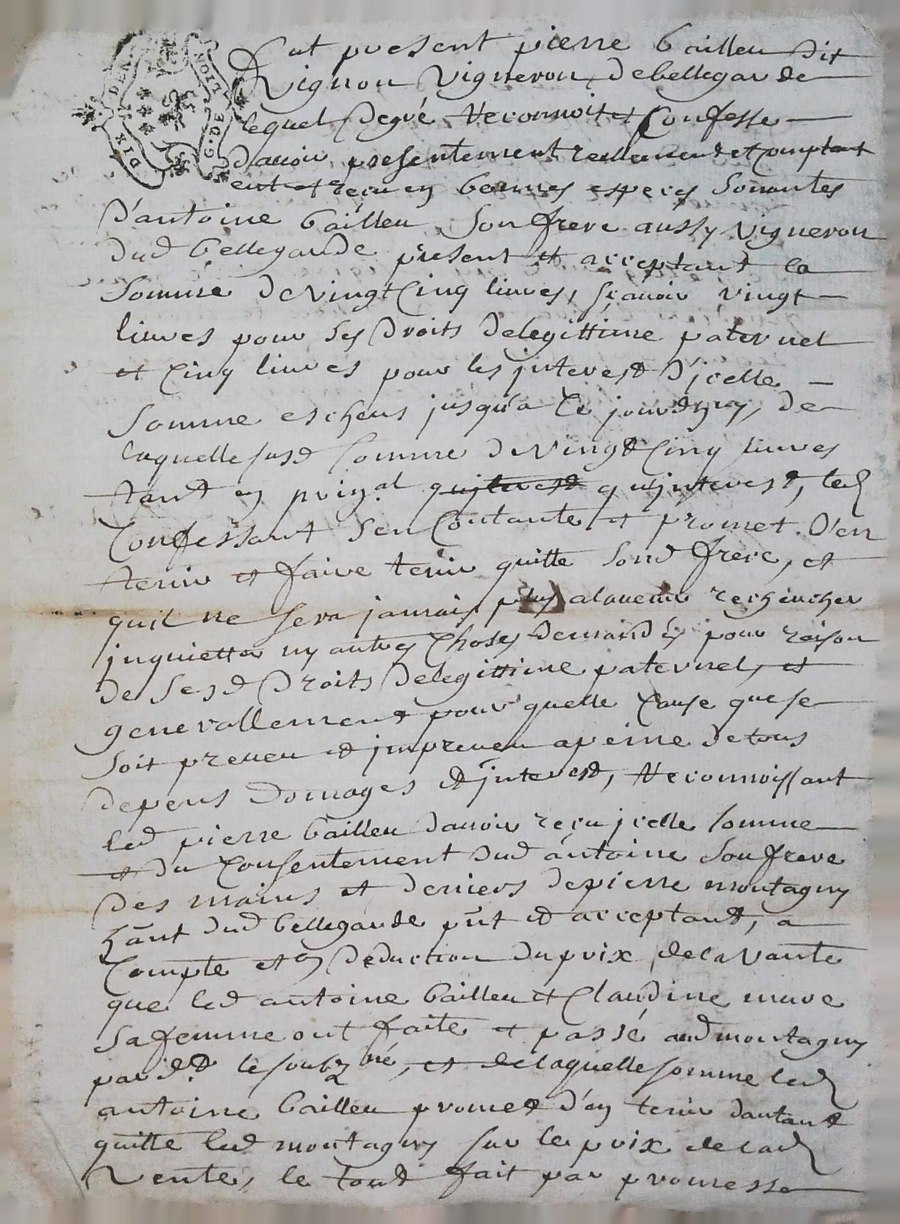 DIX DEN
G. DE LION
fut present pierre bailleu dit
Rignon vigneron, de bellegarde
lequel de gré Reconnoit et Confesse
d'avoir presentement reellement et comptant
eut et reçu en bonnes especes sonantes
D'antoine bailleu son frere aussy vigneron
dud bellegarde present et acceptant la
somme de vingt Cinq livres, sçavoir vingt
livres pour ses Droits delegittime paternel
et cinq livres pour les jnterest d'jcelle
somme escheus jusqu'a ce jourdhuy, de
laquelle susd somme de vingt Cinq livres
tant en prinal qu'jnterest, led
Confessant s'en Contante et promet D'en
tenir et faire tenir quitte sond frere, et
quil ne sera jamais plus alavenir recherché
jnquietté ny autres Choses demandés pour raison
de sesd Droits delegittime paternel, et
generallement pour quelle cause que se
soit preveu et jmpreveu apeine de tous
depens Domages et jnterest, Reconnoissant
led pierre bailleu davoir reçu jcelle somme
et du Consentement dud antoine son frere
des mains et deniers de pierre montagny
hant dud bellegarde pnt et acceptant, a
Compte et en Deduction du prix de la vante
que led antoine bailleu et Claudine mure
sa femme ont faite et passé aud montagny
pard.t le soubz.né, et de laquelle somme led
antoine bailleu promet d'en tenir dautant
quitte led montagny sur le prix de lad
vente, le tout fait par promesse